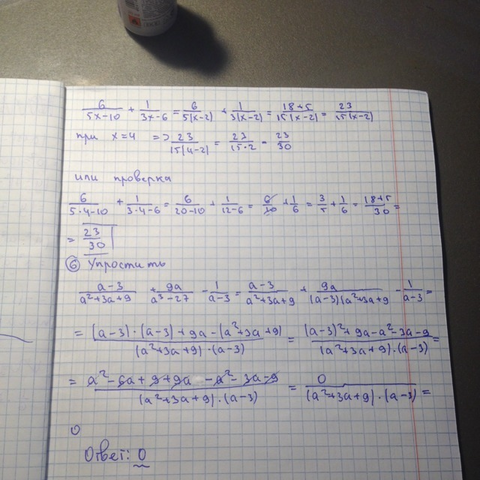 6/(5x-10) + 1/(3x-6) = 6/(5(x-2)) + 1/(3(x-2)) = (18+5)/(15(x-2)) = 23/(15(x-2))
при x=4 => 23/(15(4-2)) = 23/(15·2) = 23/30
или проверка
6/(5·4-10) + 1/(3·4-6) = 6/(20-10) + 1/(12-6) = 6/10 + 1/6 = 3/5 + 1/6 = (18+5)/30 =
= 23/30
6 Упростить
(a-3)/(a²+3a+9) + 9a/(a³-27) - 1/(a-3) = (a-3)/(a²+3a+9) + 9a/((a-3)(a²+3a+9) - 1/(a-3) =
= ((a-3)·(a-3)+9a-(a²+3a+9))/((a²+3a+9)·(a-3)) = ((a-3)²+9a-a²-3a-9)/((a²+3a+9)·(a-3)) =
= (a²-6a+9+9a-a²-3a-9)/((a²+3a+9)·(a-3)) = 0/((a²+3a+9)·(a-3)) =
0
Ответ: 0